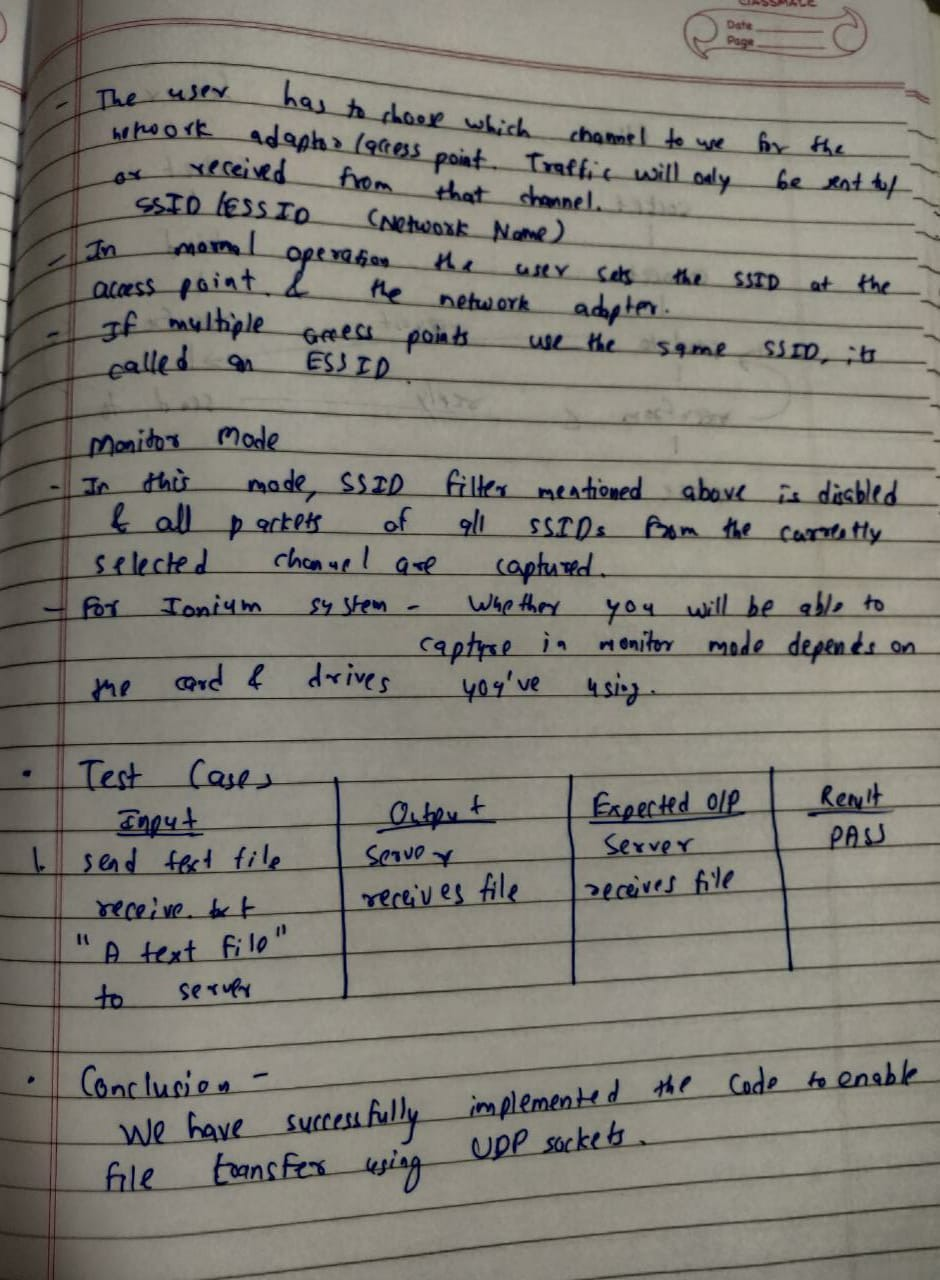 CLASSMATE
Date
Page
- The user has to choose which channel to use for the
network adaptor/access point. Traffic will only be sent to/
or received from that channel.
SSID/ESSID (Network Name)
- In normal operation the user sets the SSID at the
access point & the network adapter.
- If multiple access points use the same SSID, its
called an ESSID
Monitor Mode
- In this mode, SSID filter mentioned above is disabled
& all packets of all SSIDs from the currently
selected channel are captured.
- For Ionium system - Whether you will be able to
capture in monitor mode depends on
the card & drives you've using.
• Test Cases
Input Output Expected O/P Result
1. send text file Server Server PASS
receive.txt receives file receives file
"A text file"
to server
• Conclusion -
We have successfully implemented the code to enable
file transfer using UDP sockets.